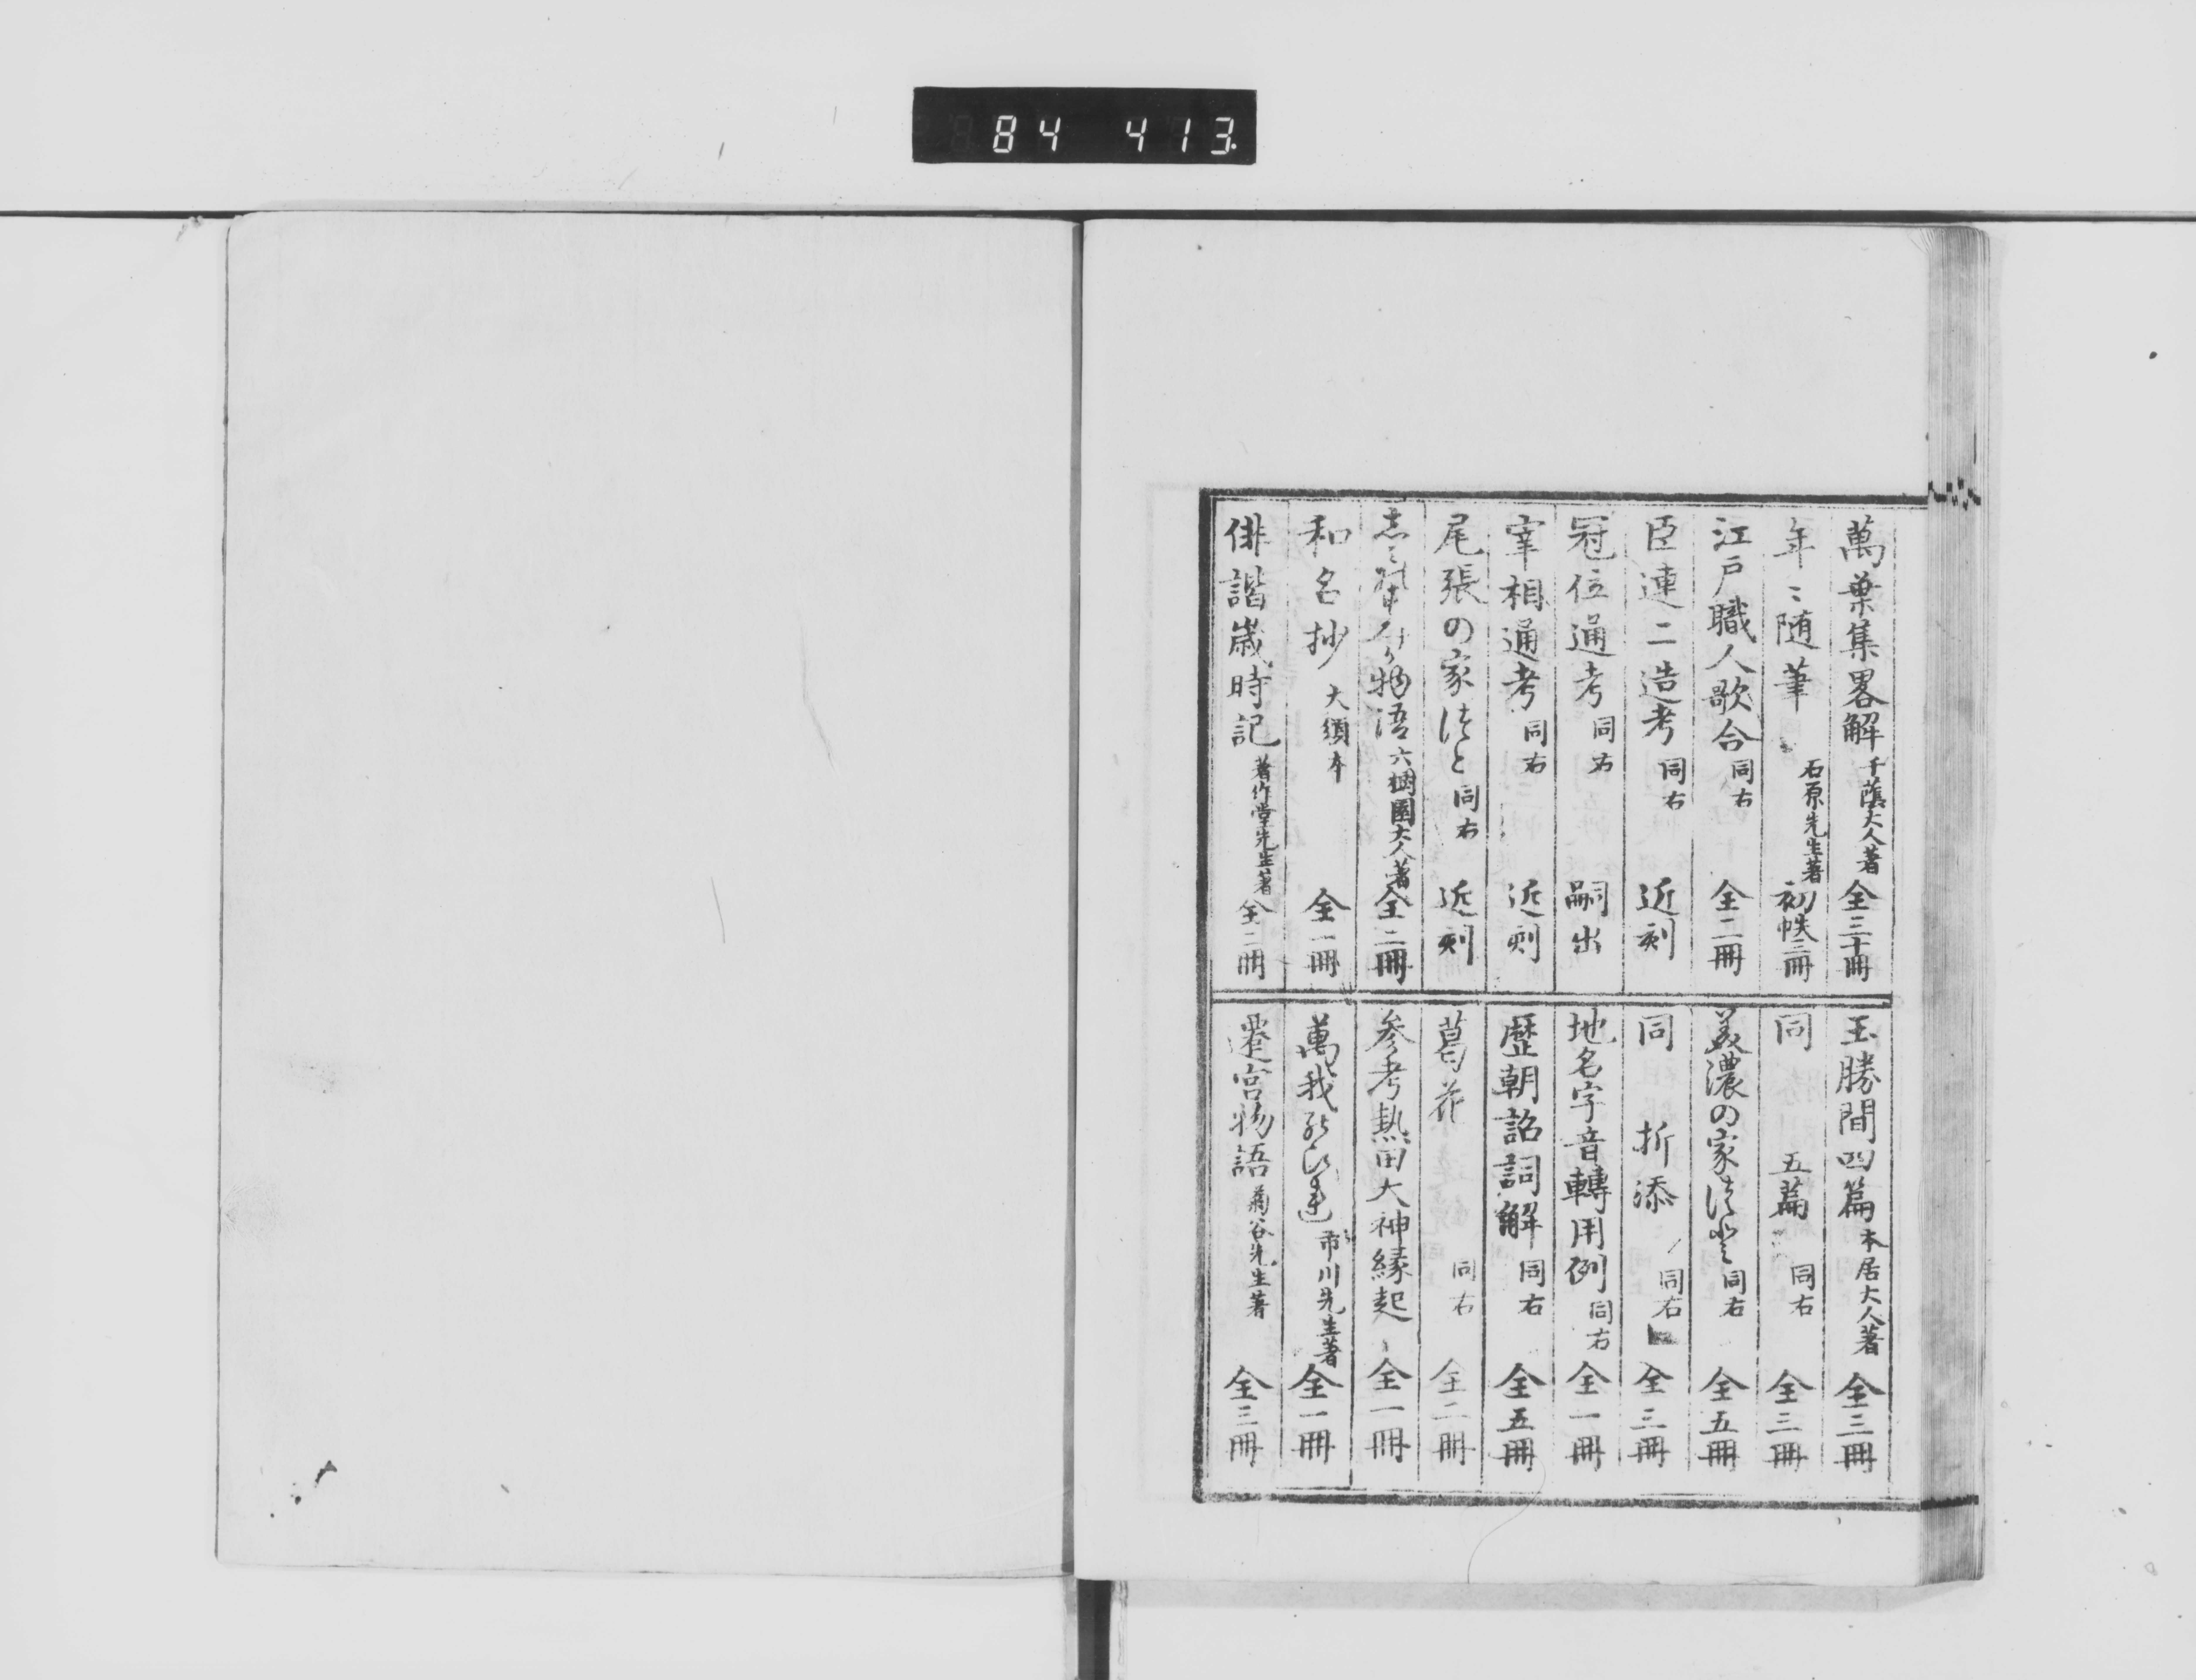 84 413
萬葉集畧解 千蔭大人著 全三十冊
年〻随筆 石原先生著 初帙三冊
江戸職人歌合 同右 全二冊
臣連二造考 同右 近刻
冠位通考 同右 嗣出
宰相通考 同右 近刻
尾張の家法と 同右 近刻
物语 六樹園大人著 全二冊
和名抄 大須本 全一冊
俳諧歳時記 著作堂先生著 全二冊
玉勝間四篇 本居大人著 全三冊
同 五篇 同右 全三冊
美濃の家法登 同右 全五冊
同 折添 同右 全三冊
地名字音轉用例 同右 全一冊
歴朝詔詞解 同右 全五冊
葛花 同右 全二冊
参考熱田大神縁起 全一冊
萬我能比連 市川先生著 全一冊
遷宮物語 菊谷先生著 全三冊